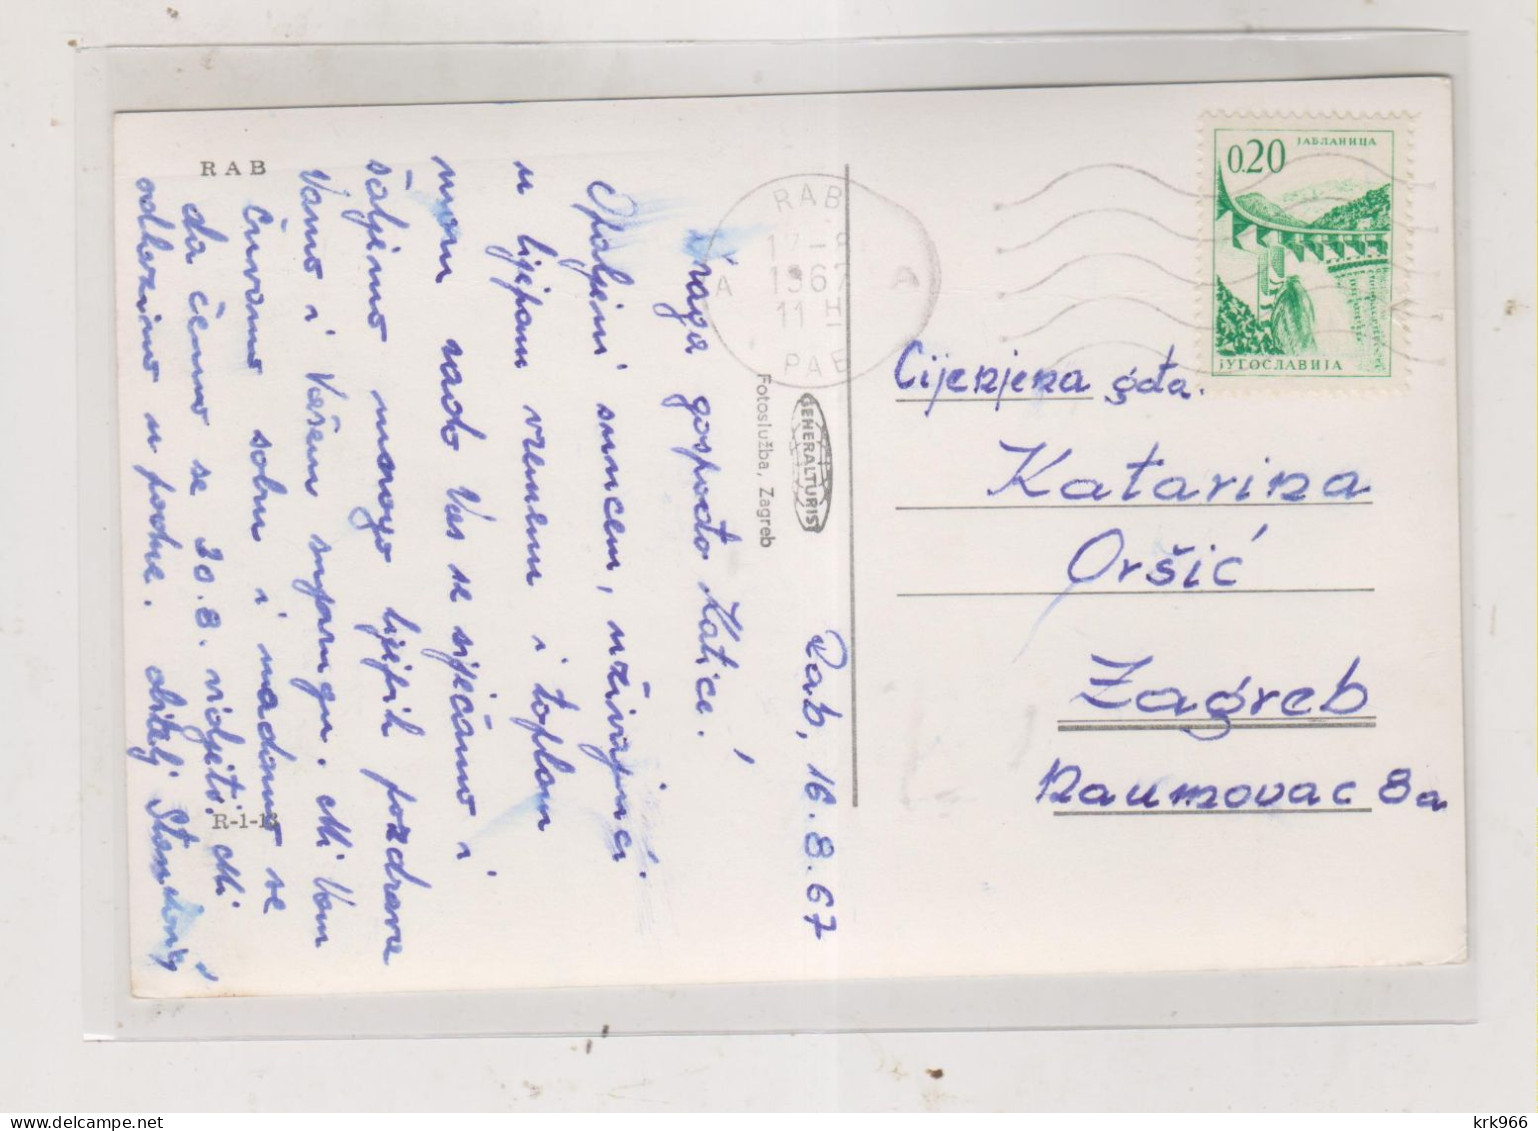 RAB
Rab, 16. 8. 67
Draga gospođo Katice!
Opaljeni suncem, uživajući
u lijepom vremenu i toplom
moru rado Vas se sjećamo i
šaljemo mnogo lijepih pozdrava
Vama i Vašem suprugu. Mi Vam
čuvamo sobu i nadamo se
da ćemo se 20. 8. vidjeti. Mi
odlazimo u podne. obitelj
R-1-13
Fotoslužba, Zagreb
GENERALTURIST
RAB
17-8
1967
11 H
A A
РАБ
0.20
ЈАБЛАНИЦА
ЈУГОСЛАВИЈА
Cijenjena gđa.
Katarina
Oršić
Zagreb
Naumovac 8a
krk966